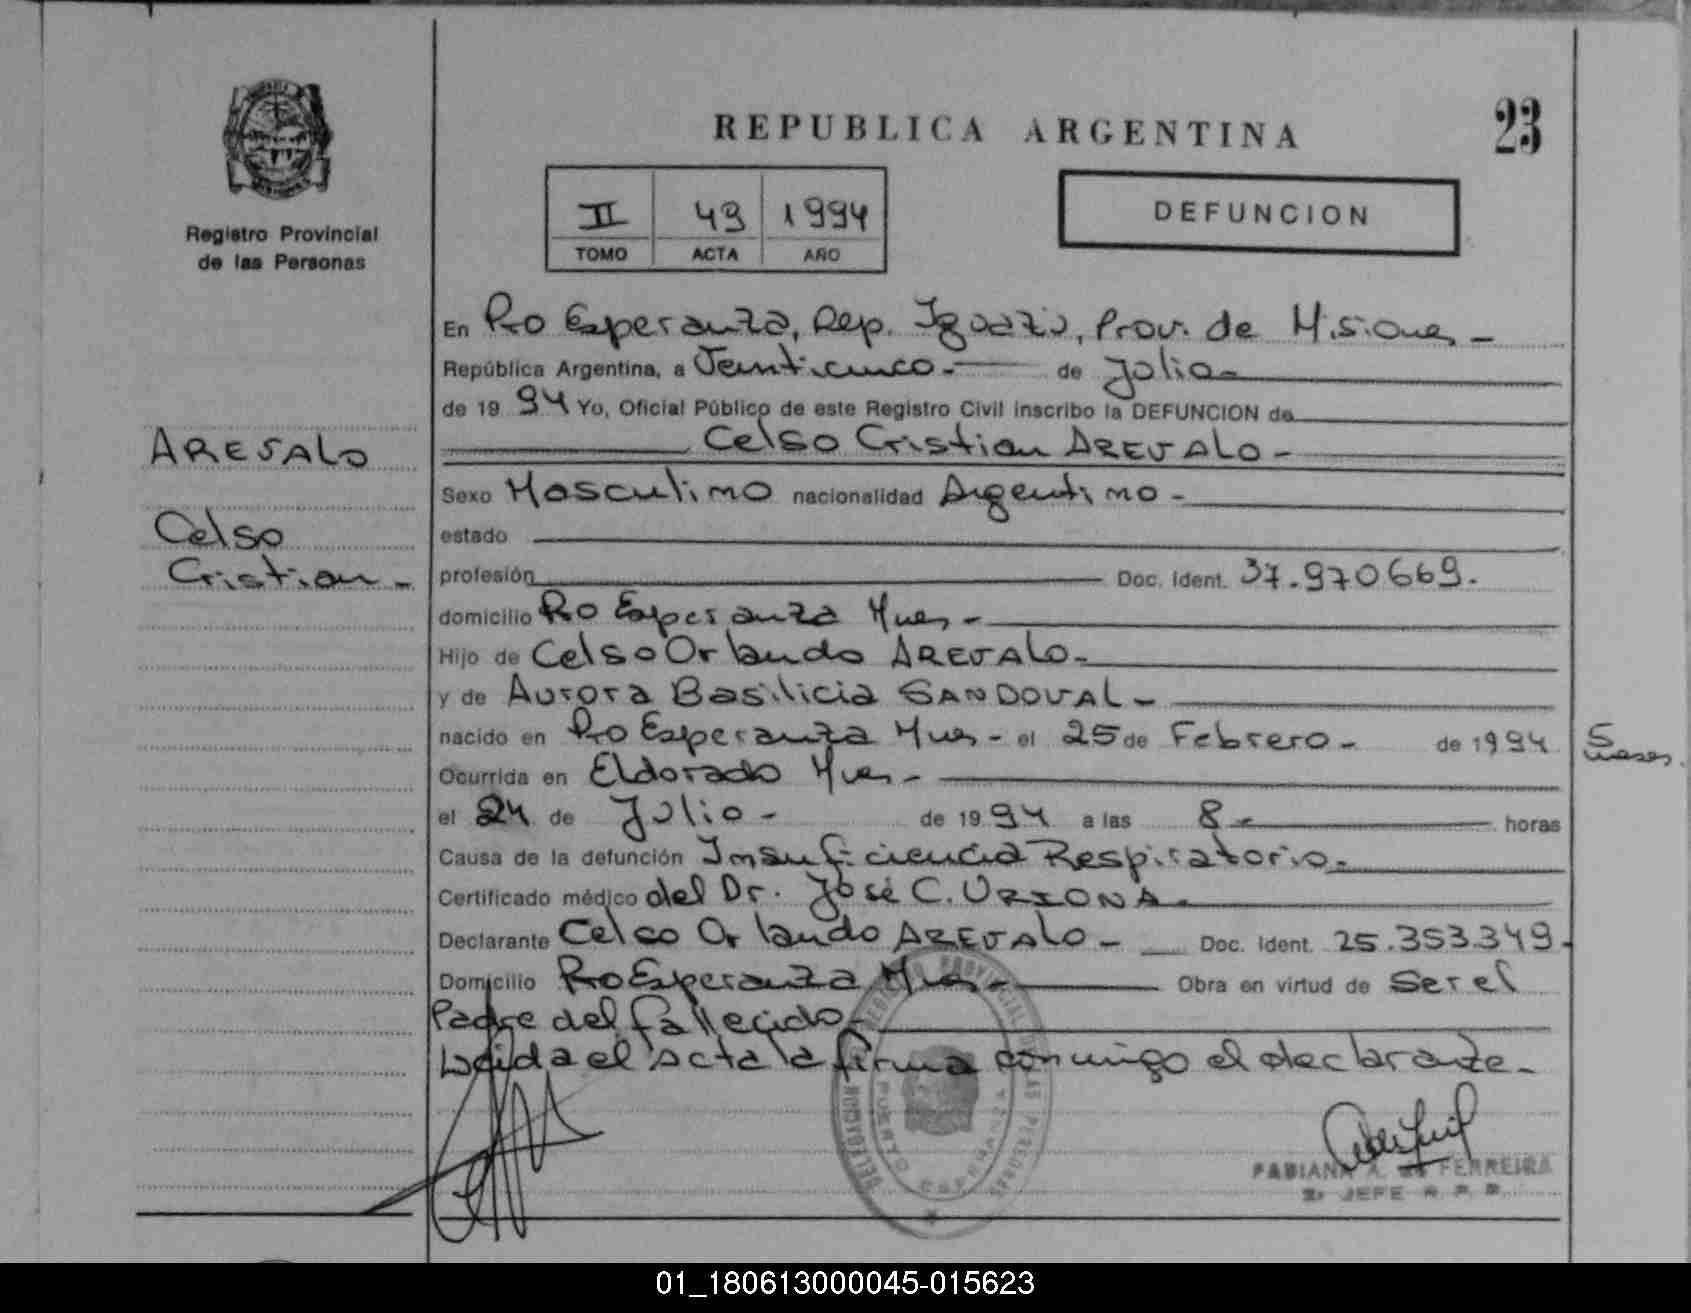 REPUBLICA ARGENTINA
23
Registro Provincial
de las Personas
II 49 1994
TOMO ACTA AÑO
DEFUNCION
AREVALO
Celso
Cristian -
En Pto Esperanza, Dep. Iguazú, Prov. de Misiones -
República Argentina, a Veinticinco - de Julio -
de 1994 Yo, Oficial Público de este Registro Civil inscribo la DEFUNCION de
Celso Cristian AREVALO -
Sexo Masculino nacionalidad Argentino -
estado
profesión Doc. Ident. 37.970669.
domicilio Pto Esperanza Mnes -
Hijo de Celso Orlando AREVALO -
y de Aurora Basilicia SANDOVAL -
nacido en Pto Esperanza Mnes - el 25 de Febrero - de 1994 5 meses.
Ocurrida en Eldorado Mnes -
el 24 de Julio - de 1994 a las 8 - horas
Causa de la defunción Insuficiencia Respiratorio.
Certificado médico del Dr. José C. URZONA.
Declarante Celso Orlando AREVALO - Doc. Ident. 25.353.349.
Domicilio Pto Esperanza Mnes - Obra en virtud de Ser el
Padre del fallecido
Leida el acta la firma conmigo el declarante -
DELEGACION REGISTRO PROVINCIAL DE LAS PERSONAS
PUERTO ESPERANZA
FABIANA A. de FERREIRA
JEFE R. P. P.
01_180613000045-015623